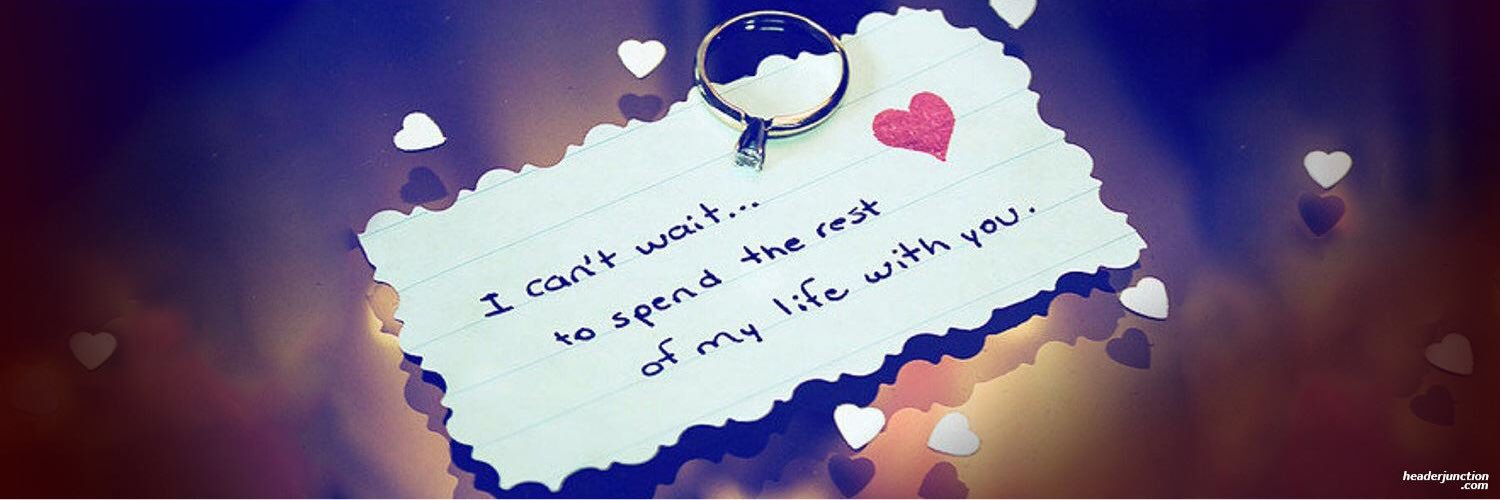 I can't wait...
to spend the rest
of my life with you.
headerjunction
.com